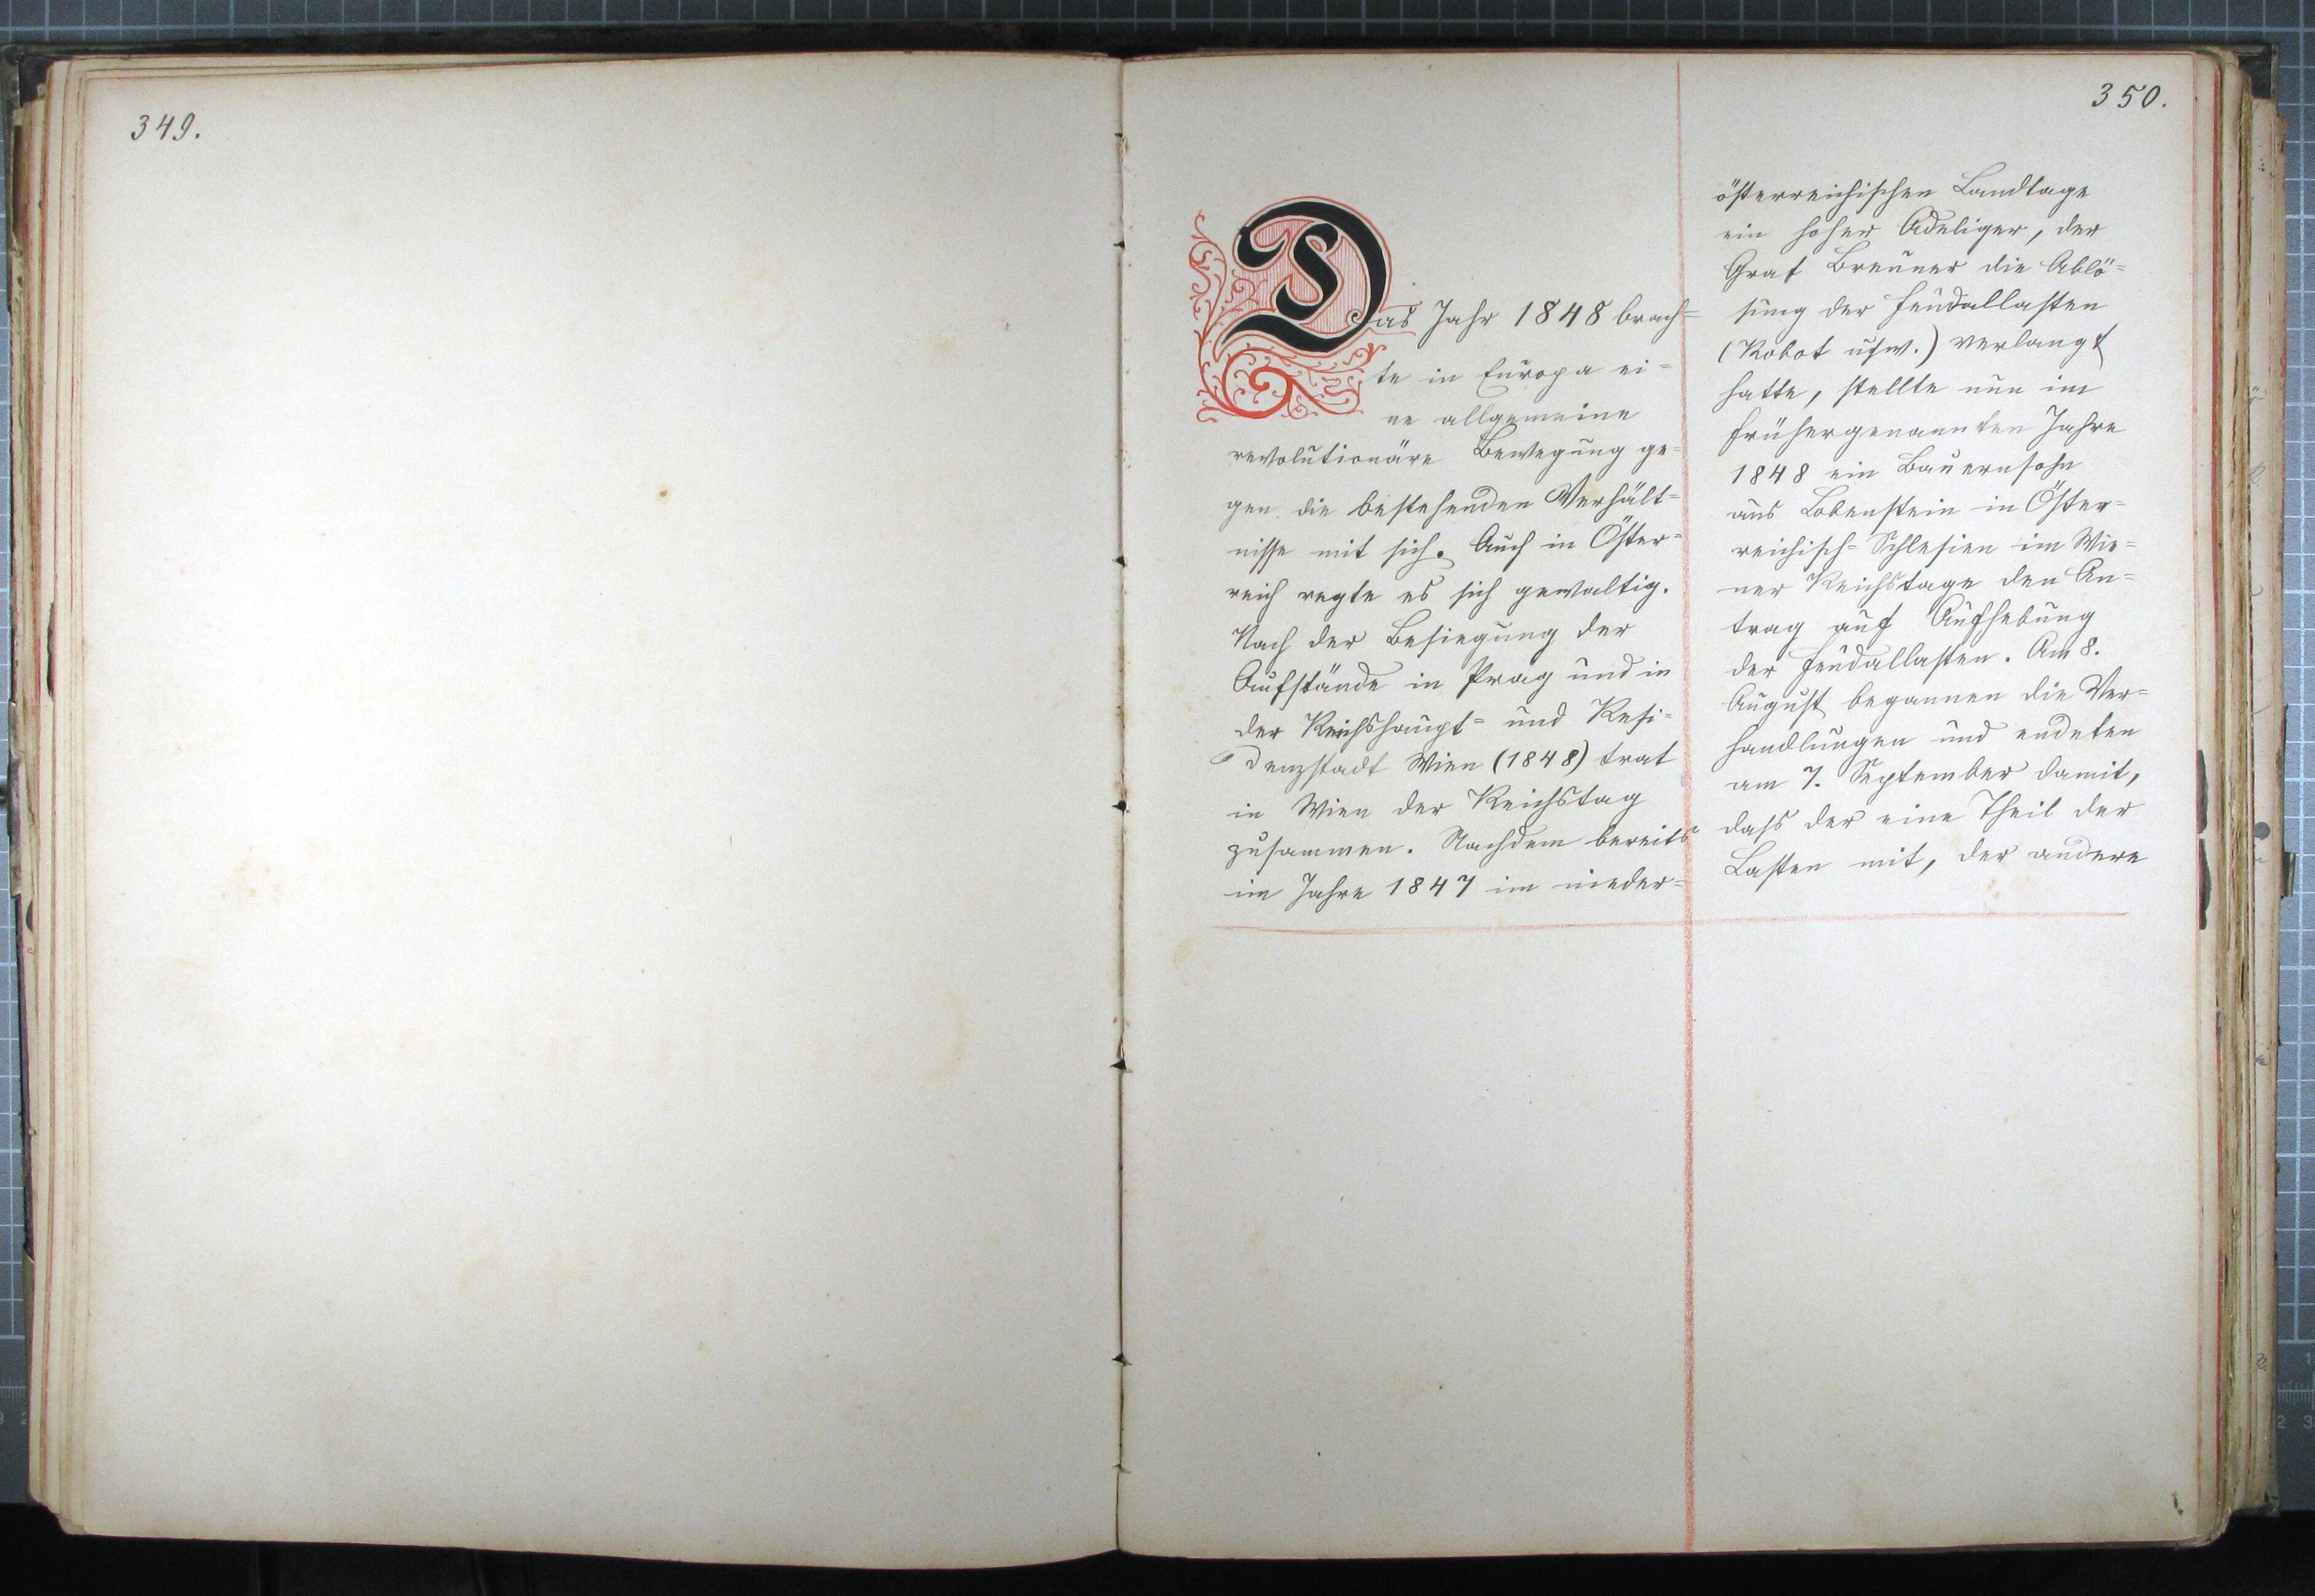 349.
350.
Das Jahr 1848 brach=
te in Europa ei=
ne allgemeine
revolutionäre Bewegung ge=
gen die bestehenden Verhält=
nisse mit sich. Auch in Öster=
reich regte es sich gewaltig.
Nach der Besiegung der
Aufstände in Prag und in
der Reichshaupt= und Resi=
denzstadt Wien (1848) trat
in Wien der Reichstag
zusammen. Nachdem bereits
im Jahre 1847 im nieder=
österreichischen Landtage
ein hoher Adeliger, der
Graf Breuner die Ablö=
sung der Feudallasten
(Robot usw.) verlangt
hatte, stellte nun im
frühergenannten Jahre
1848 ein Bauernsohn
aus Lobenstein in Öster=
reichisch=Schlesien im Wie=
ner Reichstage den An=
trag auf Aufhebung
der Feudallasten. Am 8.
August begannen die Ver=
handlungen und endeten
am 7. September damit,
dass der eine Theil der
Lasten mit, der andere